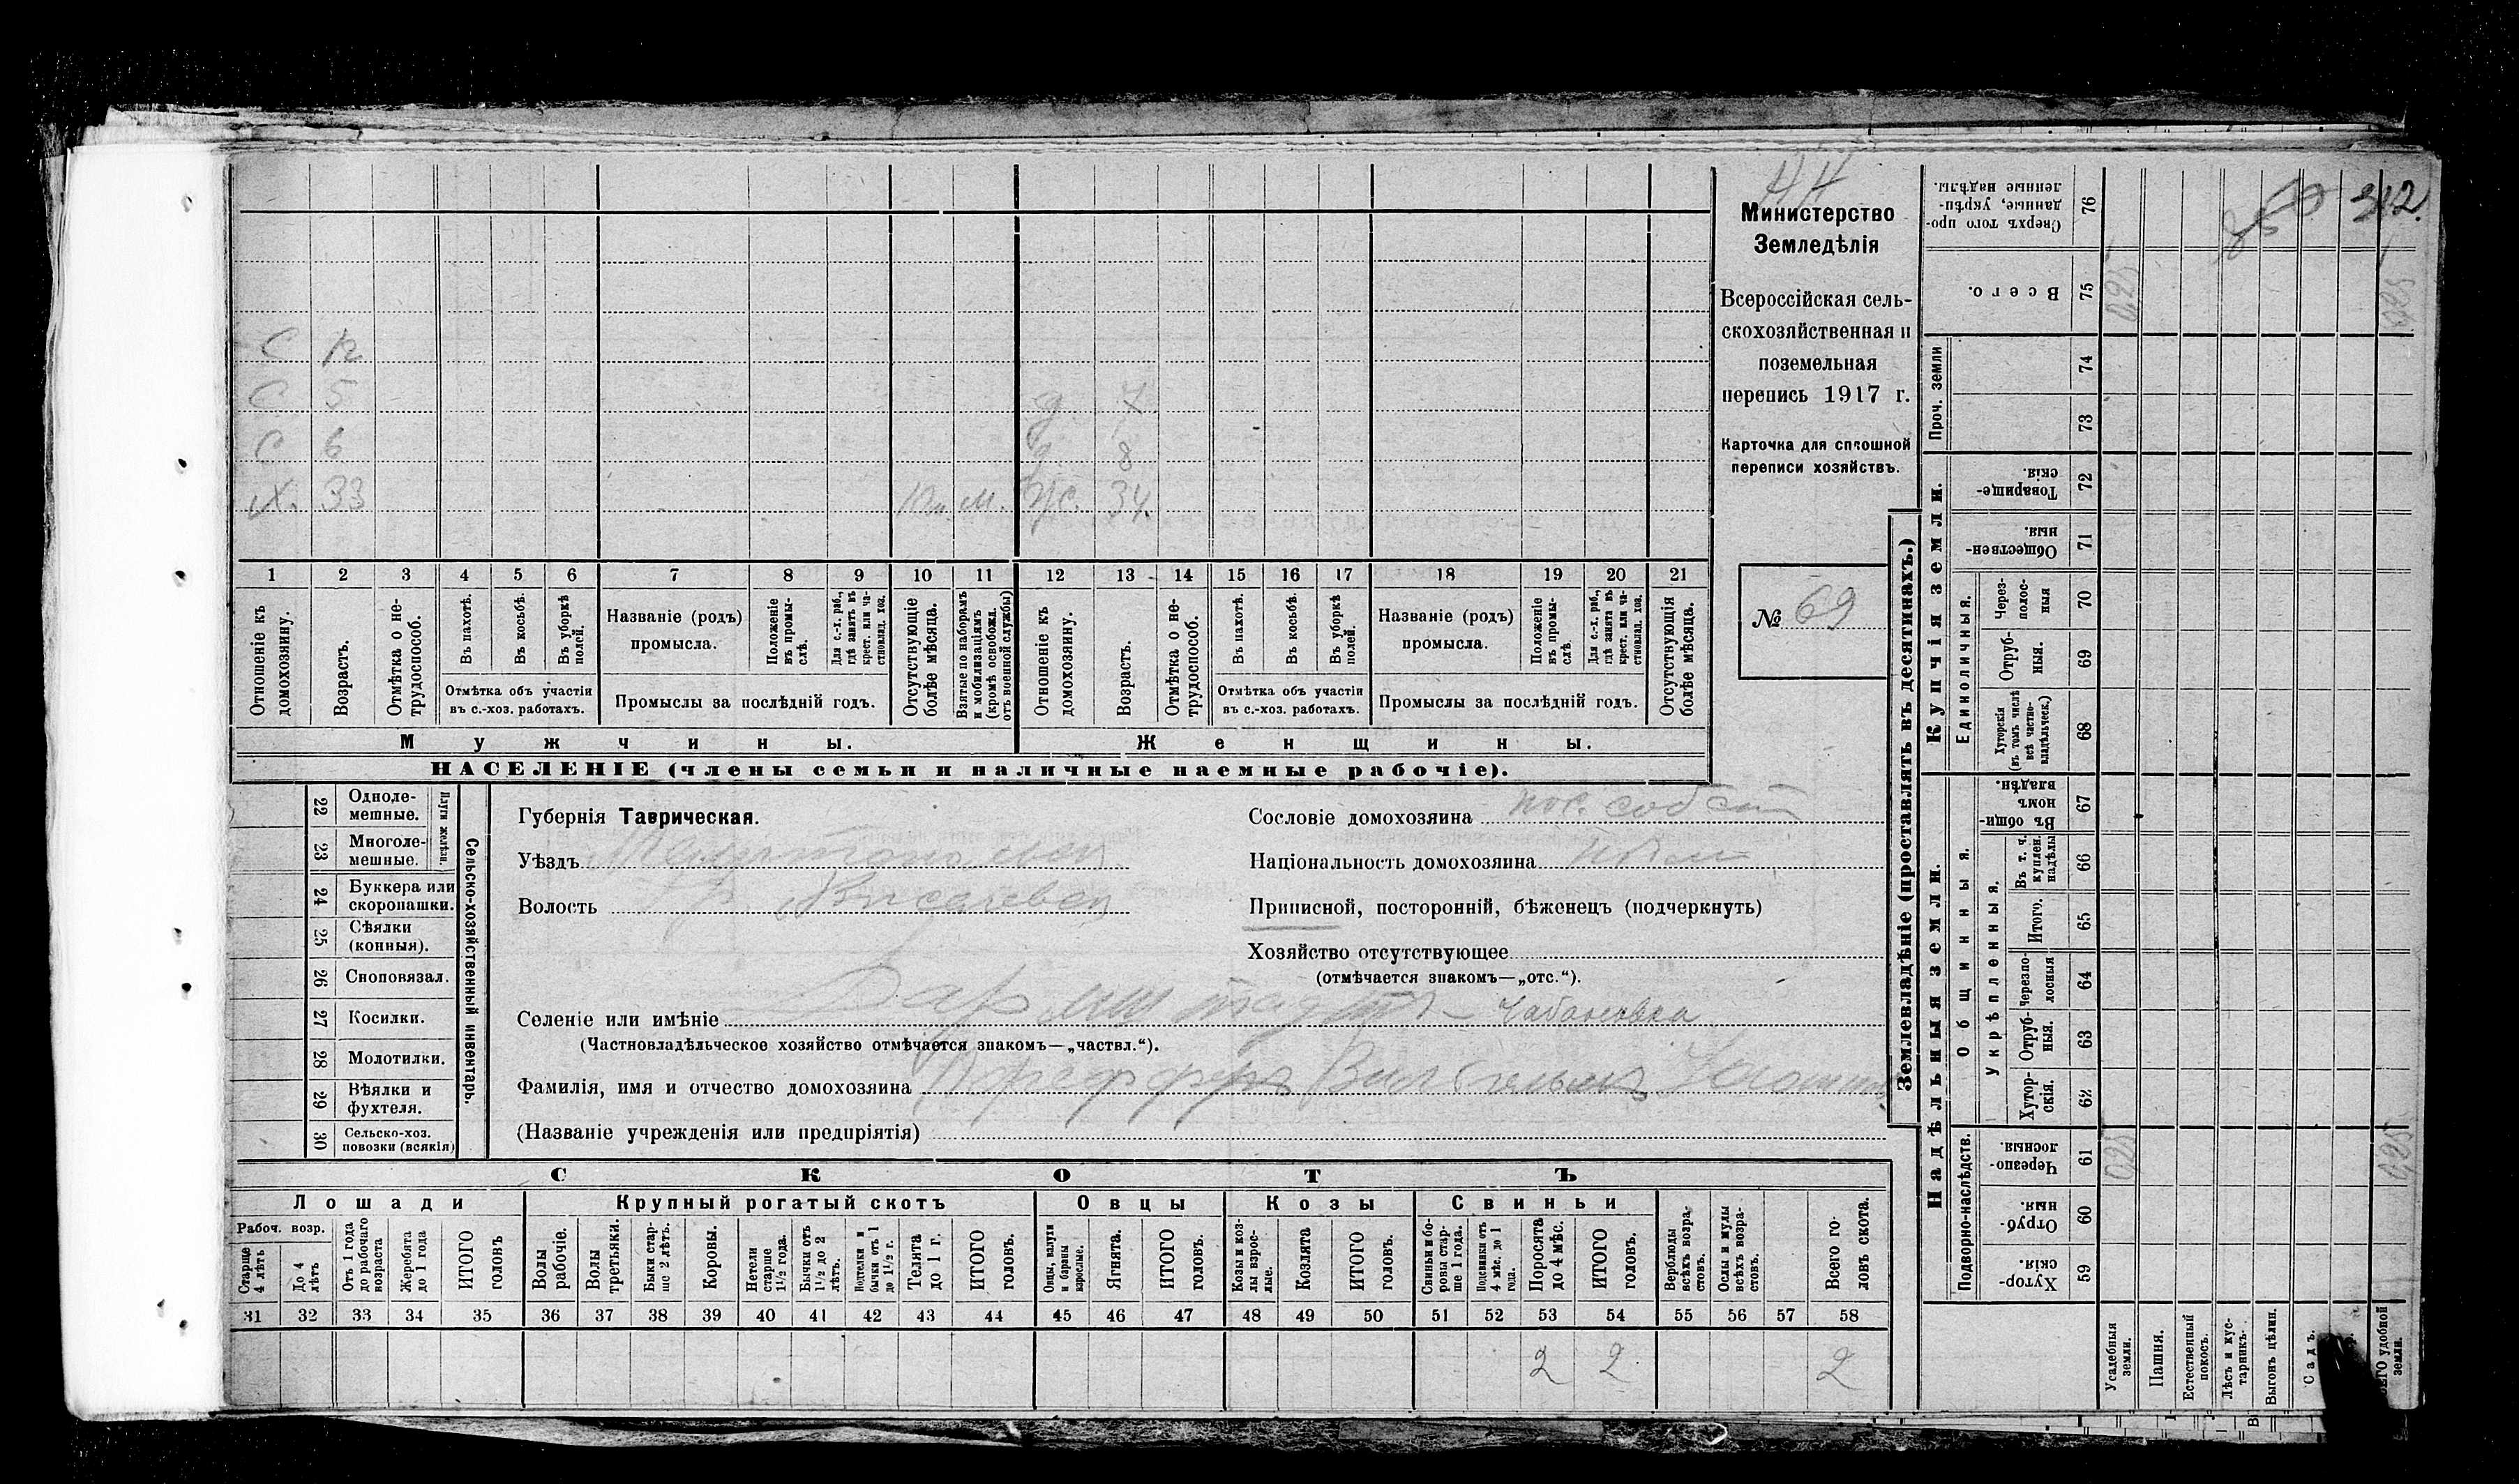 312
Министерство
Земледѣлія
Всероссійская сель-
скохозяйственная и
поземельная
перепись 1917 г.
Карточка для сплошной
переписи хозяйствъ.
№ 69
С 12
С 5 7
С 6 8
Х. 33 м. ж. 34.
1 2 3 4 5 6 7 8 9 10 11 12 13 14 15 16 17 18 19 20 21
Отношеніе къ домохозяину.
Возрастъ.
Отмѣтка о не-трудоспособ.
Въ пахотѣ.
Въ косьбѣ.
Въ уборкѣ полей.
Отмѣтка объ участіи
въ с.-хоз. работахъ.
Названіе (родъ)
промысла.
Положеніе въ промы-слѣ.
Для с.-х. раб., гдѣ занятъ въ крест. или ча-стновлад. хоз.
Промыслы за послѣдній годъ.
Отсутствующіе болѣе мѣсяца.
Взятые по наборамъ и мобилизаціямъ (кромѣ освобожд. отъ военной службы)
Отношеніе къ домохозяину.
Возрастъ.
Отмѣтка о не-трудоспособ.
Въ пахотѣ.
Въ косьбѣ.
Въ уборкѣ полей.
Отмѣтка объ участіи
въ с.-хоз. работахъ.
Названіе (родъ)
промысла.
Положеніе въ промы-слѣ.
Для с.-х. раб., гдѣ занята въ крест. или ча-стновлад. хоз.
Промыслы за послѣдній годъ.
Отсутствующія болѣе мѣсяца.
Мужчины. Женщины.
НАСЕЛЕНІЕ (члены семьи и наличные наемные рабочіе).
Сельско-хозяйственный инвентарь.
Плуги желѣзн.
22 Одноле-мешные.
23 Многоле-мешные.
24 Буккера или скоропашки.
25 Сѣялки (конныя).
26 Сноповязал.
27 Косилки.
28 Молотилки.
29 Вѣялки и фухтеля.
30 Сельско-хоз. повозки (всякія)
Губернія Таврическая.
Уѣздъ Мелитопольскій
Волость
Сословіе домохозяина пос. собст
Національность домохозяина
Приписной, посторонній, бѣженецъ (подчеркнуть)
Хозяйство отсутствующее
(отмѣчается знакомъ—„отс.“).
Селеніе или имѣніе Дармштадтъ - Чабановка
(Частновладѣльческое хозяйство отмѣчается знакомъ—„частвл.“).
Фамилія, имя и отчество домохозяина Пфефферъ Вильгельмъ
(Названіе учрежденія или предпріятія)
СКОТЪ
Лошади Крупный рогатый скотъ Овцы Козы Свиньи
Рабоч. возр.
Старше 4 лѣтъ
До 4 лѣтъ
Отъ 1 года до рабочаго возраста
Жеребята до 1 года
ИТОГО головъ
Волы рабочіе.
Волы третьяки.
Быки стар-ше 2 лѣтъ.
Коровы.
Нетели старше 1 1/2 года.
Бычки отъ 1 1/2 до 2 лѣтъ.
Подтелки и бычки отъ 1 до 1 1/2 г.
Телята до 1 г.
ИТОГО головъ.
Овцы, валухи и бараны взрослые.
Ягнята.
ИТОГО головъ.
Козы и коз-лы взрос-лые.
Козлята
ИТОГО головъ.
Свиньи и бо-ровы стар-ше 1 года.
Подсвинки отъ 4 мѣс. до 1 года.
Поросята до 4 мѣс.
ИТОГО головъ.
Верблюды всѣхъ возра-стовъ.
Ослы и мулы всѣхъ возра-стовъ.
Всего го-ловъ скота.
31 32 33 34 35 36 37 38 39 40 41 42 43 44 45 46 47 48 49 50 51 52 53 54 55 56 57 58
2 2 2
Землевладѣніе (проставлять въ десятинахъ.)
Купчія земли.
Надѣльныя земли.
Сверхъ того про-данные, укрѣп-ленные надѣлы. 76
Всего. 75 0,25 0,25
Проч. земли 74
73
Товарище-скія. 72
Обществен-ныя 71
Единоличныя.
Через-полос-ныя 70
Отруб-ныя. 69
Хуторскія (въ томъ числѣ всѣ частно-владѣльческ.) 68
Въ общи-номъ владѣн. 67
Общинныя.
Укрѣпленныя.
Въ т. ч. куплен. надѣлы 66
Итого. 65
Черезпо-лосныя 64
Отруб-ныя. 63
Хутор-скія. 62
Подворно-наслѣдств.
Черезпо-лосныя. 61 0,25 0,25
Отруб-ныя. 60
Хутор-скія. 59
Усадебныя земли.
Пашня.
Естественный покосъ.
Лѣсъ и кус-тарникъ.
Выгонъ цѣлин.
Садъ.
удобной земли.